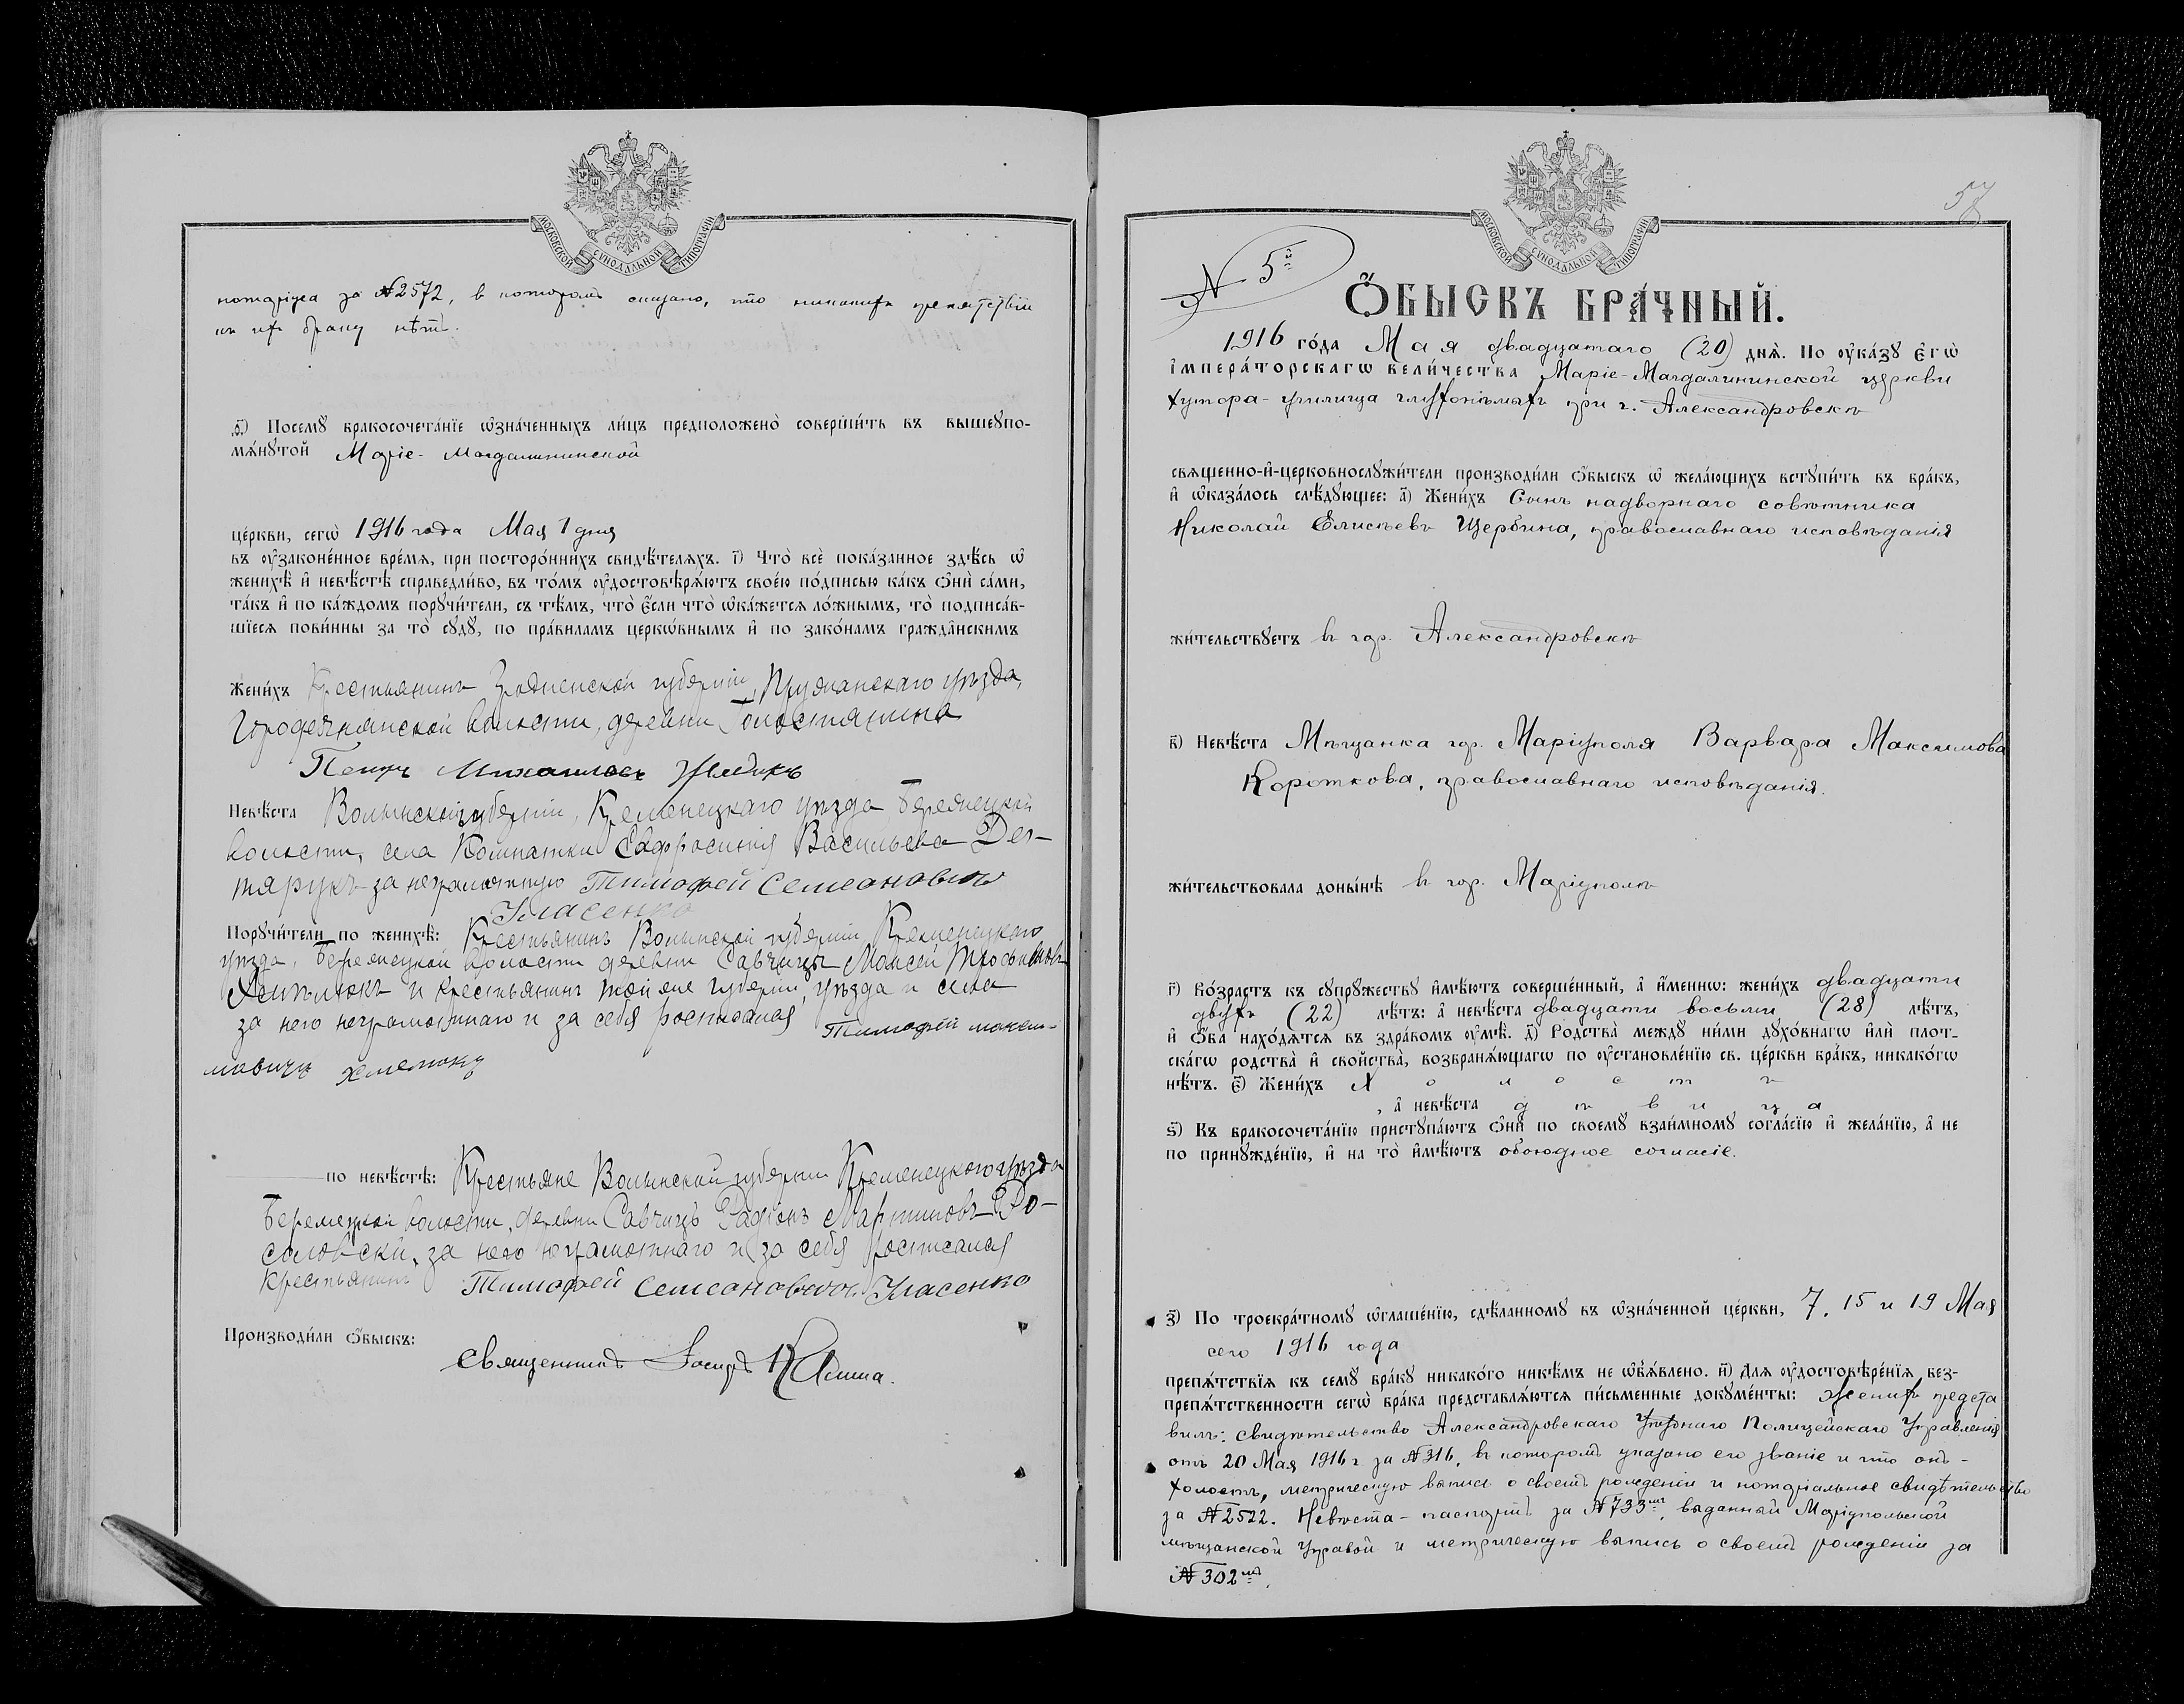 МОСКОВСКОЙ СѴНОДАЛЬНОЙ ТѴПОГРАФІИ
нотаріуса за №2572, в которомъ сказано, что никакихъ препятствій
къ ихъ браку нѣтъ.
ѳ҃) Посемꙋ̀ бракосочета́нїе ѡ҆зна́ченныхъ ли́цъ предположено̀ соверши́ть въ вышеꙋпо-
мѧ́нꙋтой Маріе-Магдалининской
це́ркви, сегѡ̀ 1916 года Мая 1 дня
въ ᲂу҆законе́нное вре́мѧ, при посторо́ннихъ свидѣ́телѧхъ. і҃) Что̀ всѐ пока́занное здѣ́сь ѡ҆
женихѣ̀ и҆ невѣ́стѣ справедли́во, въ то́мъ ᲂу҆достовѣрѧ́ютъ свое́ю по́дписью ка́къ ѻ҆нѝ са́ми,
та́къ и҆ по ка́ждомъ порꙋчи́тели, съ тѣ́мъ, что̀ є҆́сли что̀ ѡ҆ка́жется ло́жнымъ, то̀ подписа́в-
шїеся пови́нны за то̀ сꙋдꙋ̀, по пра́виламъ церкѡ́внымъ и҆ по зако́намъ гражда́нскимъ
Жени́хъ Крестьянинъ Гродненской губерніи, Пружанскаго уѣзда,
волости, деревни
Петръ Михаиловъ
Невѣ́ста Волынской губерніи, Кременецкаго уѣзда, Бережецкой
волости, села Комнатки Евфросинія Васильева Дег-
тярукъ за неграмотную Тимофей Семеоновичъ
Уласенко
Порꙋчи́тели по женихѣ̀: Крестьянинъ Волынской губерніи Кременецкаго
уѣзда, Бережецкой волости деревни Савчицы Моисей
и крестьянинъ той же губерніи, уѣзда и села
за него неграмотнаго и за себя росписался Тимофей максы-
мовичъ
по невѣ́стѣ: Крестьяне Волынской губерніи Кременецкого уѣзда
Бережецкой волости, деревни Савчицъ Радіонъ Мартиновъ
за него неграмотнаго и за себя росписался
крестьянинъ Тимофей Семеоновичъ Уласенко
Производи́ли ѻ҆́быскъ:
Священникъ Іосифъ
57
МОСКОВСКОЙ СѴНОДАЛЬНОЙ ТѴПОГРАФІИ
№ 5й
Ѻ҆́БЫСКЪ БРА́ЧНЫЙ.
1916 го́да Мая двадцатаго (20) днѧ̀. По ᲂу҆ка́зꙋ є҆гѡ̀
і҆мпера́торскагѡ вели́чества Маріе-Магдалининской церкви
хутора-училища глухонѣмыхъ при г. Александровскѣ
свѧще́нно-и҆-церковнослꙋжи́тели производи́ли ѻ҆́быскъ ѡ҆ жела́ющихъ встꙋпи́ть въ бра́къ,
и҆ ѡ҆каза́лось слѣ́дꙋющее: а҃) Жени́хъ Сынъ надворнаго совѣтника
Николай Елисѣевъ Щербина, православнаго исповѣданія
жи́тельствꙋетъ в гор. Александровскѣ
в҃) Невѣ́ста Мѣщанка гор. Маріуполя Варвара Максимова
Короткова, православнаго исповѣданія.
жи́тельствовала доны́нѣ в гор. Маріуполѣ
г҃) Во́зрастъ къ сꙋпрꙋ́жествꙋ и҆мѣ́ютъ соверше́нный, а҆ и҆́меннѡ: жени́хъ двадцати
двухъ (22) лѣ́тъ: а҆ невѣ́ста двадцати восьми (28) лѣ́тъ,
и҆ ѻ҆́ба нахо́дѧтсѧ въ здра́вомъ ᲂу҆мѣ̀. д҃) Родства̀ междꙋ̀ ни́ми дꙋхо́внагѡ и҆лѝ плот-
ска́гѡ родства̀ и҆ сво́йства̀, возбранѧ́ющагѡ по ᲂу҆становле́нїю св. це́ркви бра́къ, никако́гѡ
нѣ́тъ. є҃) Жени́хъ Холостъ
, а҆ невѣ́ста дѣвица
ѕ҃) Къ бракосочета́нїю пристꙋпа́ютъ ѻ҆нѝ по своемꙋ̀ взаи́мномꙋ согла́сїю и҆ жела́нїю, а҆ не
по принꙋжде́нїю, и҆ на то̀ и҆мѣ́ютъ обоюдное согласіе.
з҃) По троекра́тномꙋ ѡ҆глаше́нїю, сдѣ́ланномꙋ въ ѡ҆зна́ченной це́ркви, 7, 15 и 19 Мая
сего 1916 года
препѧ́тствїѧ къ семꙋ̀ бра́кꙋ никако́го никѣ́мъ не ѡ҆б̾ѧ́влено. и҃) Длѧ ᲂу҆достовѣре́нїѧ без-
препѧ́тственности сегѡ̀ бра́ка представлѧ́ются пи́сьменные докꙋме́нты: Женихъ предста
вилъ: свидѣтельство Александровскаго Уѣзднаго Полицейскаго Управленія
отъ 20 Мая 1916 г за №316, въ которомъ указано его званіе и что онъ-
холостъ, метрическую выпись о своемъ рожденіи и нотаріальное свидѣтельство
за №2522. Невѣста-паспортъ за №733мъ, выданный Маріупольской
мѣщанской Управой и метрическую выпись о своемъ рожденіи за
№302мъ.